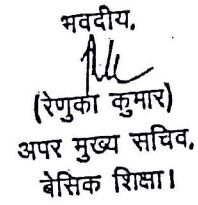 भवदीय,
(रेणुका कुमार)
अपर मुख्य सचिव,
बेसिक शिक्षा।